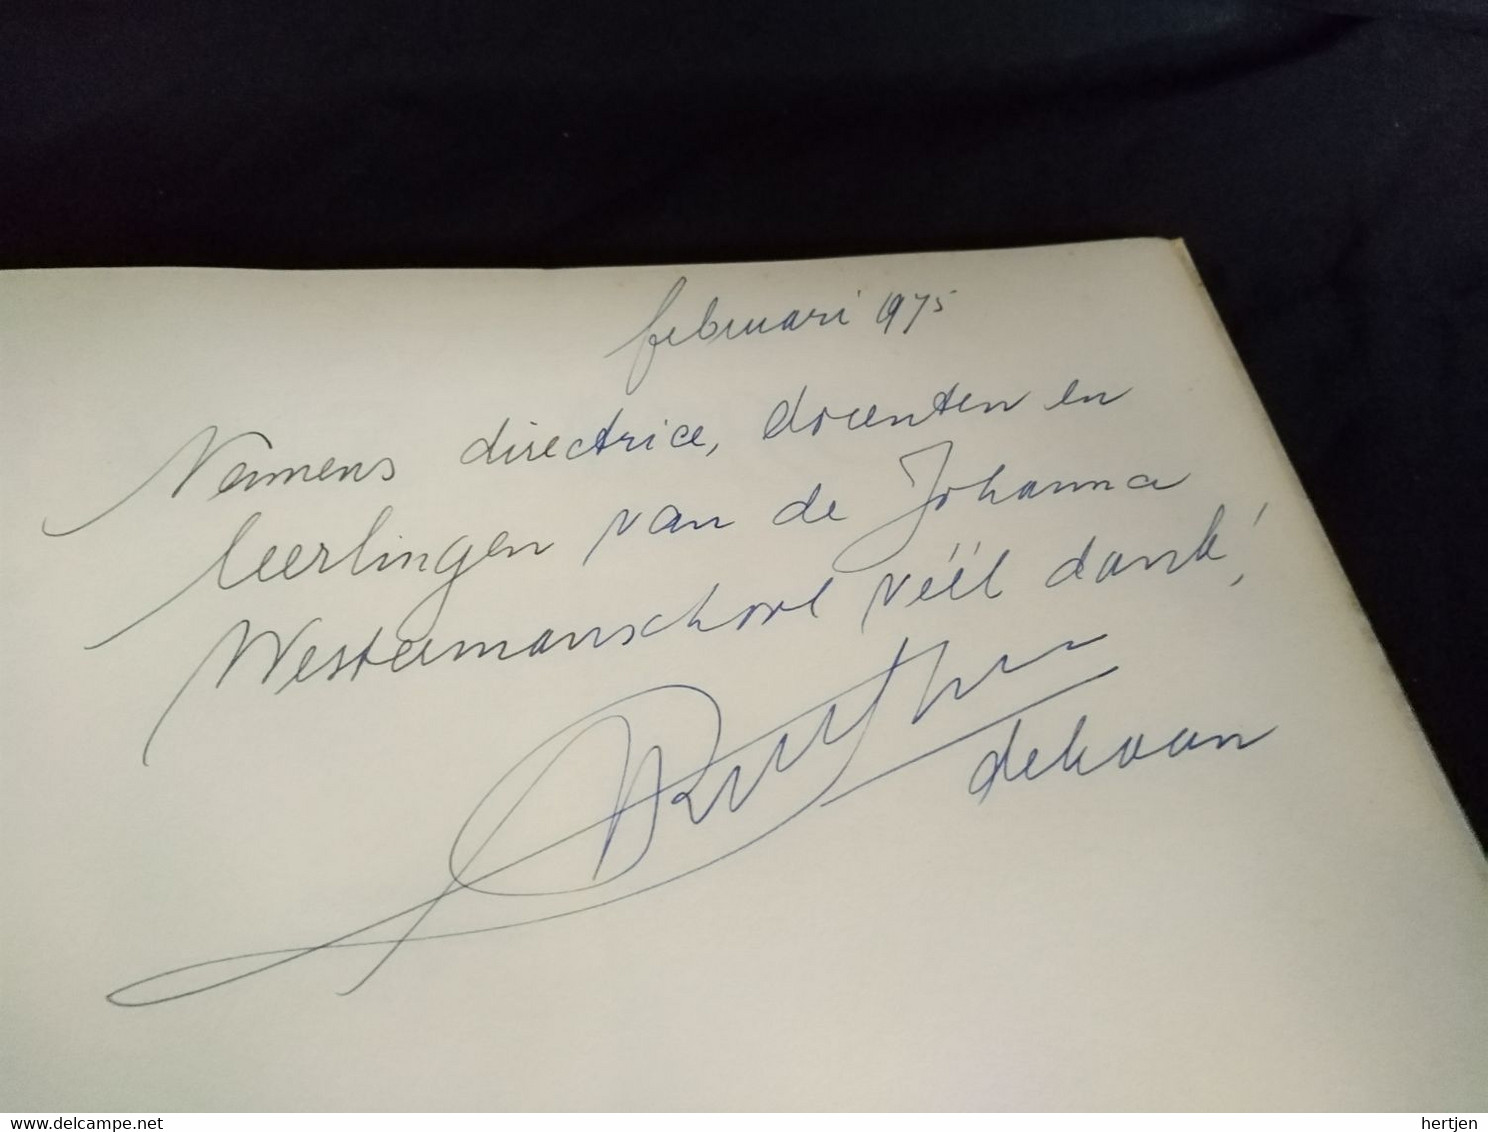 februari 1975
Namens directrice, docenten en
leerlingen van de Johanna
Westermanschool véél dank!
dekaan
www.delcampe.net
hertjen